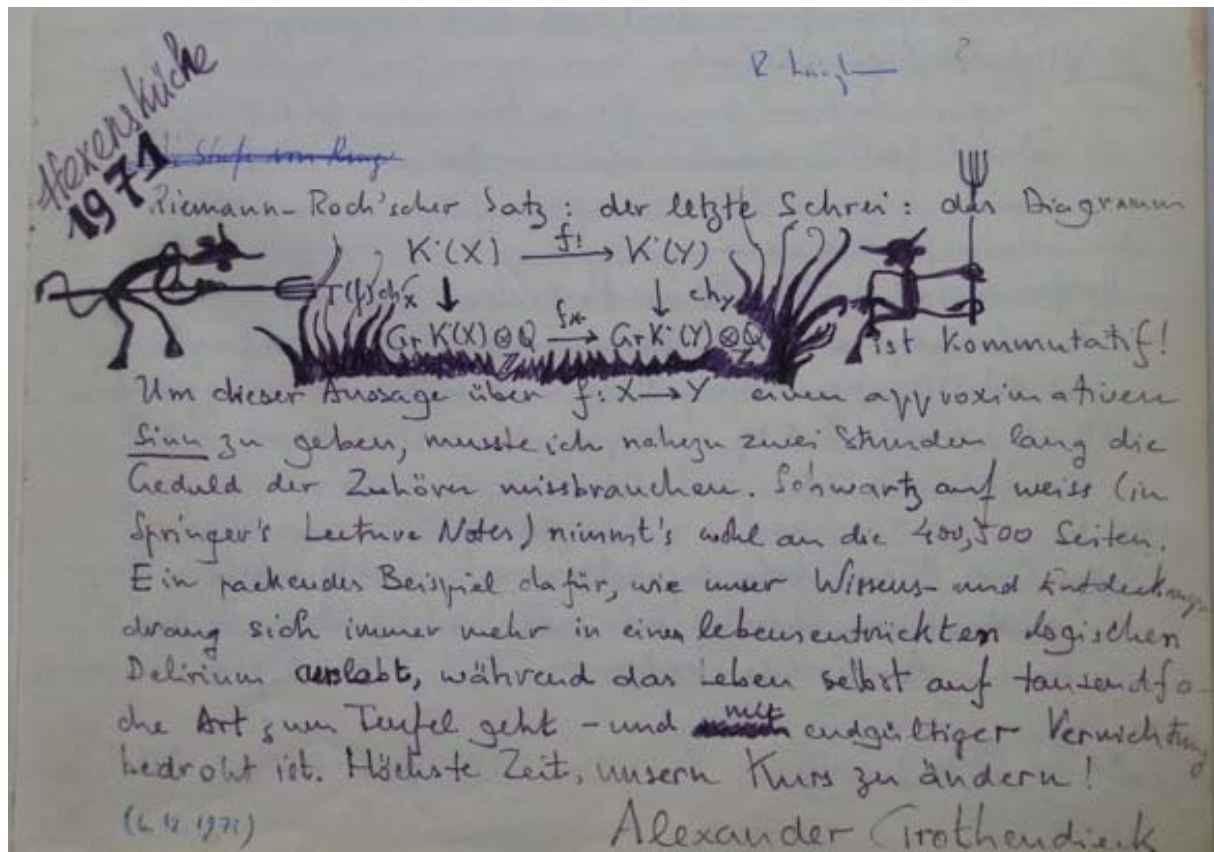 Hexenküche
1971
Riemann-Roch'scher Satz: der letzte Schrei: das Diagramm
K˙(X) f! → K˙(Y)
T(f)chX ↓ ↓ chY
Gr K˙(X)⊗Q f* → Gr K˙(Y)⊗Q
Z Z
ist kommutatif!
Um dieser Aussage über f: X→Y einen approximativen
Sinn zu geben, musste ich nahezu zwei Stunden lang die
Geduld der Zuhörer missbrauchen. Schwartz auf weiss (in
Springer's Lecture Notes) nimmt's wohl an die 400,500 Seiten.
Ein packendes Beispiel dafür, wie unser Wissens- und Entdeckungs-
drang sich immer mehr in einem lebensentrückten logischen
Delirium auslebt, während das Leben selbst auf tausendfa-
che Art zum Teufel geht - und mit endgültiger Vernichtung
bedroht ist. Höchste Zeit, unsern Kurs zu ändern!
Alexander Grothendieck